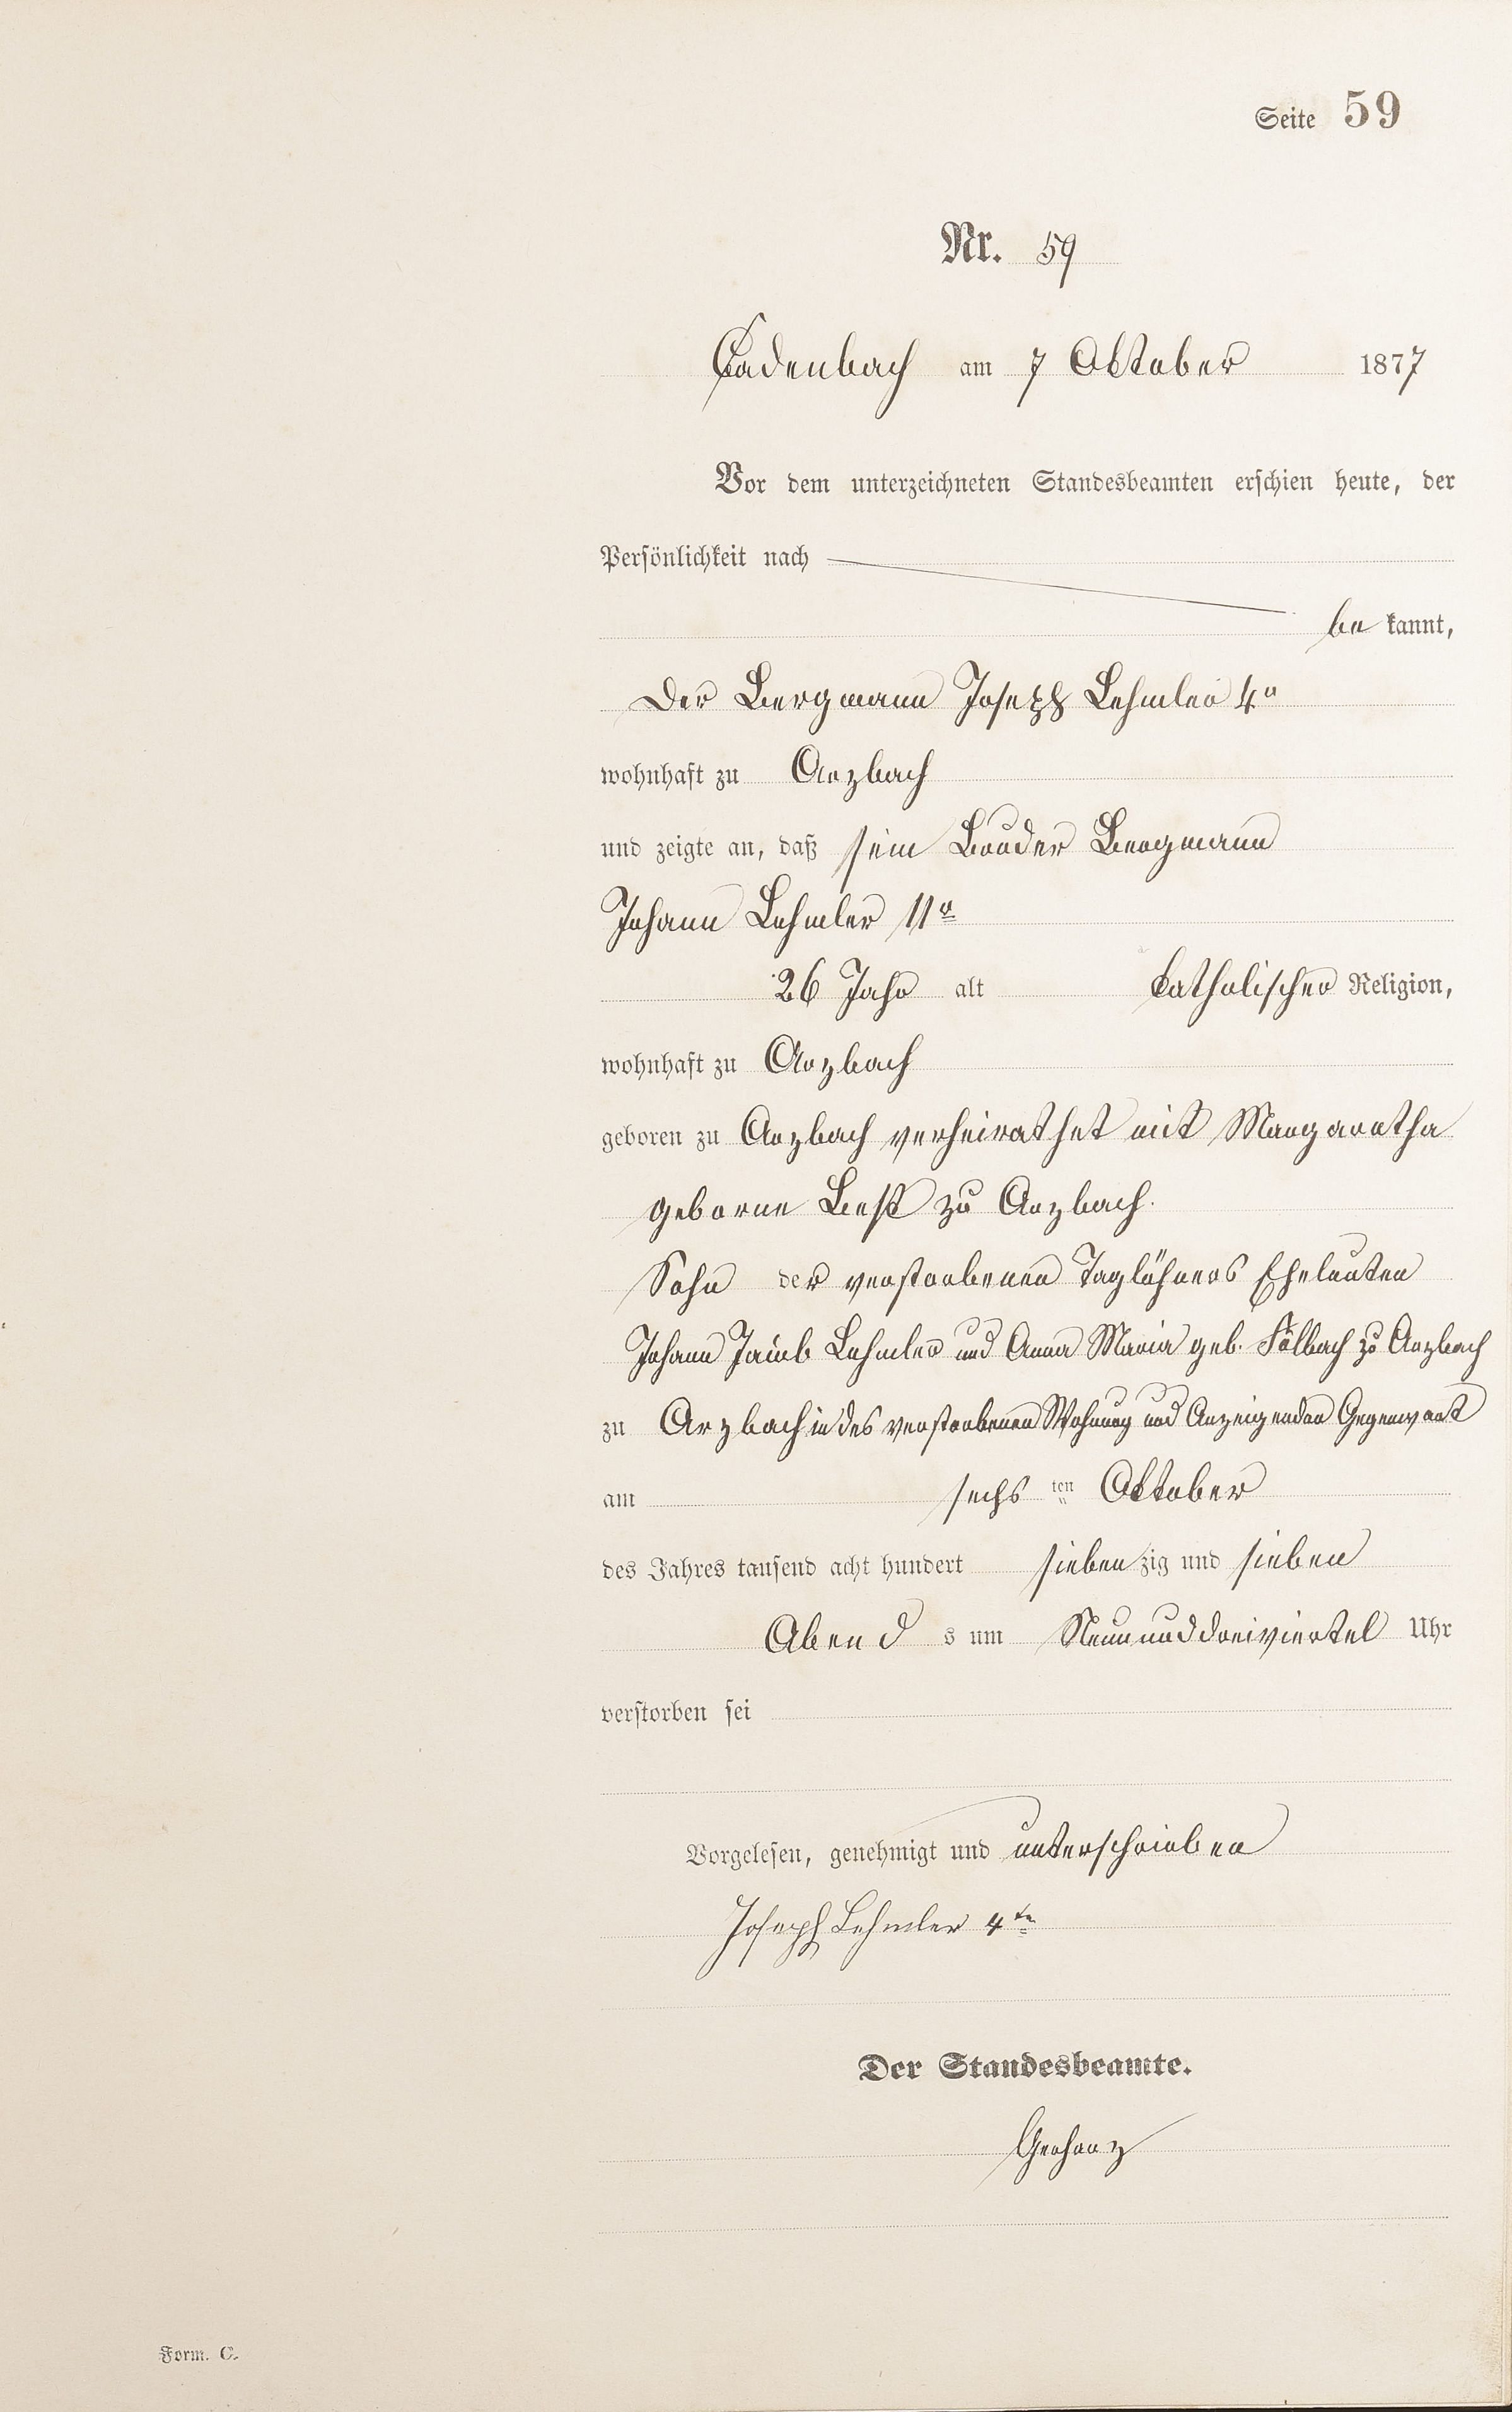 Seite 59
Nr. 59
Cadenbach am 7 Oktober 1877
Vor dem unterzeichneten Standesbeamten erschien heute, der
Persönlichkeit nach
be kannt,
Der Bergmann Joseph Lehmler 4r
wohnhaft zu Arzbach
und zeigte an, daß sein Bruder Bergmann
Johann Lehmler 11r
26 Jahr alt katholischer Religion,
wohnhaft zu Arzbach
geboren zu Arzbach verheirathet mit Margaretha
geborne Best zu Arzbach.
Sohn der verstorbenen Taglöhners Eheleuten
Johann Jacob Lehmler und Anna Maria geb. zu Arzbach
zu Arzbach in des verstorbenen Wohnung und Anzeigenden Gegenwart
am sechs ten Oktober
des Jahres tausend acht hundert sieben zig und sieben
Abend s um Neun und dreiviertel Uhr
verstorben sei
Vorgelesen, genehmigt und unterschrieben
Joseph Lehmler 4te
Der Standesbeamte.
Gerharz
Form. C.